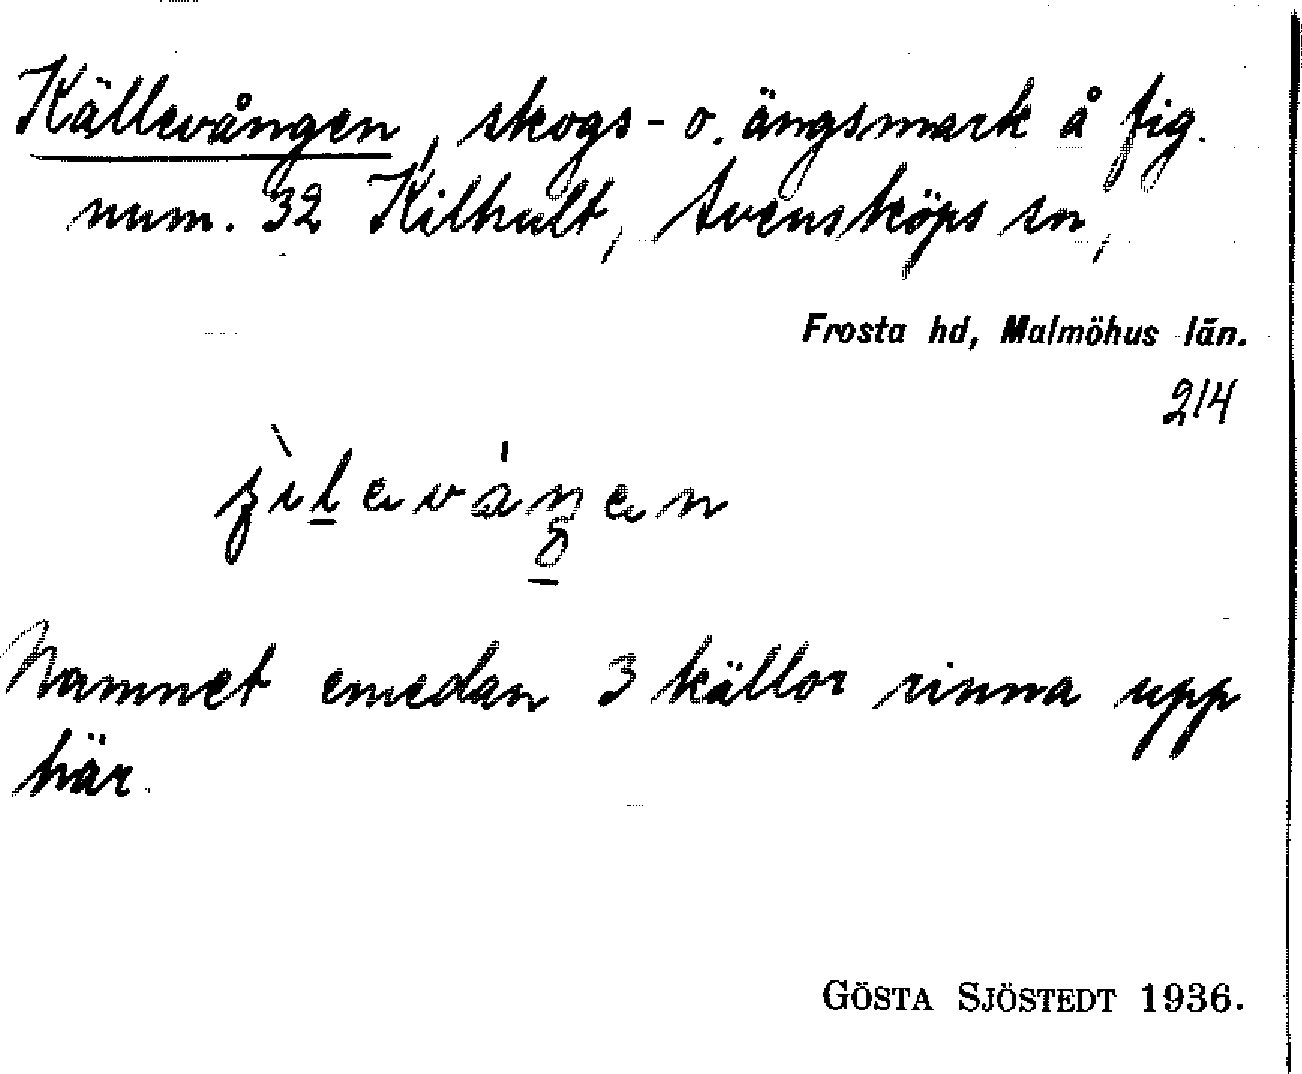 Källevången, skogs- o. ängsmark å fig.
num. 32 Kilhult, Svensköps sn,
Frosta hd, Malmöhus län.
214
Namnet emedan 3 källor rinna upp
här.
GÖSTA SJÖSTEDT 1936.